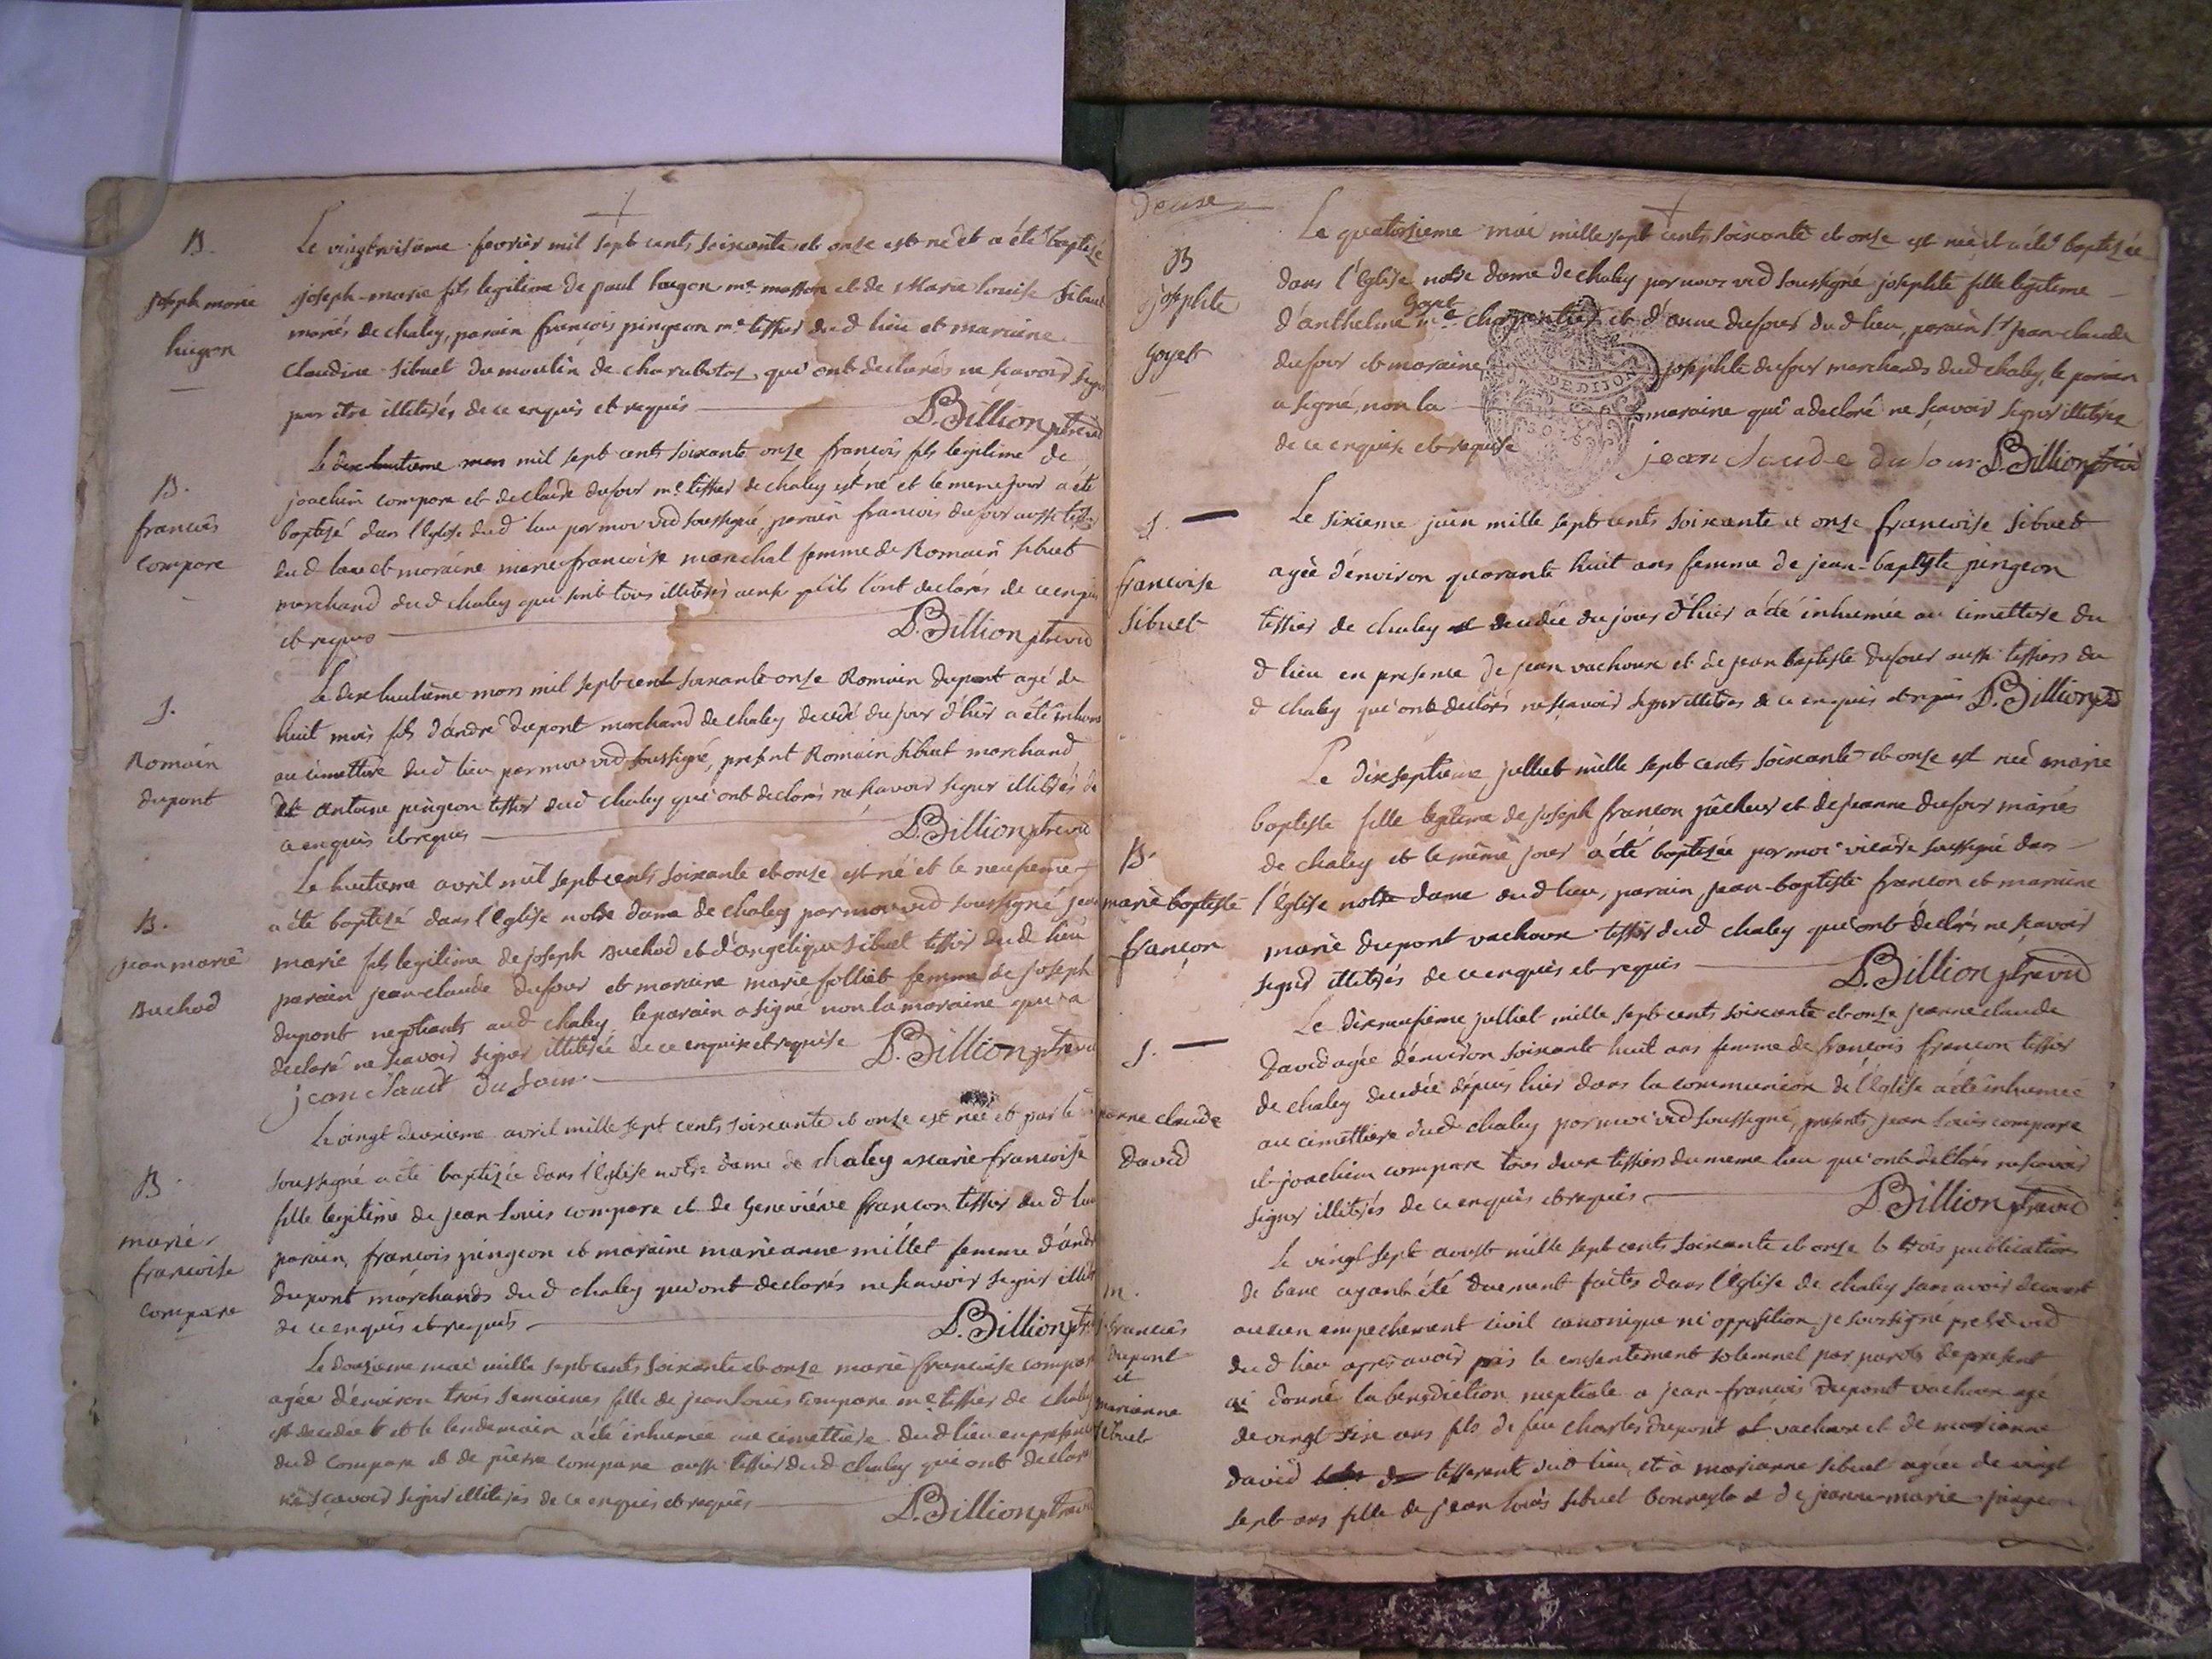 B.
joseph marie
hugon
Le vingtroisième fevrier mil sept cents soixante et onze est né et a été baptisé
joseph-marie fils legitime de paul hugon me masson et de Marie Louise Sibuet
mariés de chaley, parain françois pingeon me tissier dud lieu et maraine
Claudine Sibuet du moulin de charabotaz, qui ont declarés ne sçavoir signer
pour être illiterés de ce enquis et requis D. Billion ptre vic
B.
francois
compare
Le dix huitieme mars mil sept cent soixante onze françois fils legitime de
joachim compare et de claude dufour me tissier de chaley est né et le meme jour a été
baptisé dans l'Eglise dud lieu par moi vic soussigné, parain francois dufour aussi tissier
dud lieu et moraine marie francoise marechal femme de Romain sibuet
marchand dud chaley qui sont tous illiterés ainsi qu'ils l'ont declarés de ce enquis
et requis D. Billion ptre vic
S.
Romain
dupont
Le dix huitième mars mil sept cent soixante onze Romain dupont agé de
huit mois fils d'andré dupont marchand de chaley decedé du jour d'hier a été inhumé
au cimettiere dud lieu par moi vic soussigné, present Romain sibuet marchand
et antoine pingeon tissier dud chaley qui ont declarés ne scavoir signer illiterés de
ce enquis et requis D. Billion ptre vic
B.
jean marie
Buchod
Le huitieme avril mil sept cents soixante et onze est né et le neufieme
a été baptisé dans l'Eglise notre dame de chaley par moi vic soussigné jean
marie fils legitime de joseph Buchod et d'angelique sibuet tissier dud lieu
parain jean-claude dufour et maraine marie folliet femme de joseph
dupont negotiants aud chaley, le parain a signé non la maraine qui a
declaré ne scavoir signer illiterée de ce enquise et requise D. Billion ptre vic
jean claude dufour
B.
marie
francoise
compare
Le vingt deuxieme avril mille sept cents soixante et onze est née et par le
soussigné a été baptisée dans l'Eglise notre dame de chaley marie-francoise
fille legitime de jean Louis compare et de Geneviéve francon tissier dud lieu
parain, francois pingeon et maraine marieanne millet femme d'andré
dupont marchands dud chaley qui ont declarés ne scavoir signer illiterés
de ce enquis et requis D. Billion ptre
Le douzieme mai mille sept cents soixante et onze marie francoise compare
agée d'environ trois semaines fille de jean Louis compare me tissier de chaley
est decedée et le lendemain a été inhumée au cimettière dud lieu en presence
dud compare et de pierre compare aussi tissier dud chaley qui ont declaré
ne scavoir signer illiterés de ce enquis et requis D. Billion ptre vic
Deuxe
B
josephte
Goyet
Le quatorzieme mai mille sept cents soixante et onze est née et a été baptisée
dans l'Eglise notre dame de chaley par nous vic soussigné josephte fille legitime
Goyet
d'anthelme me charpentier et d'anne dufour dud lieu, parain sr jean claude
dufour et moraine josephte dufour marchands dud chaley, le parain
a signé, non la maraine qui a declaré ne scavoir signer illiterée
de ce enquise et requise jean claude dufour D. Billion ptre vic
DE DIJON
S.
francoise
sibuet
Le sixieme juin mille sept cents soixante et onze francoise sibuet
agée d'environ quarante huit ans femme de jean-baptiste pingeon
tissier de chaley decedée du jour d'hier a été inhumée au cimettiere du
d lieu en presence de jean vachoux et de jean baptiste dufour aussi tissiers du
d chaley qui ont declarés ne scavoir signer illiteres de ce enquis et requis D. Billion
B.
marie baptiste
françon
Le dixseptieme julliet mille sept cents soixante et onze est née marie
baptiste fille legitime de joseph francon pêcheur et de jeanne dufour mariés
de chaley et le même jour a été baptisée par moi vicaire soussigné dans
l'Eglise notre dame dud lieu, parain jean-baptiste francon et maraine
marie dupont vachoux tissier dud chaley qui ont déclarés ne scavoir
signer illiterés de ce enquis et requis D. Billion ptre vic
S.
jeanne claude
David
Le dixneufieme julliet mille sept cents soixante et onze jeanne claude
David agée d'environ soixante huit ans femme de francois francon tissier
de chaley decedée depuis hier dans la communion de l'Eglise a été inhumée
au cimettiere dud chaley par moi vic soussigné, presents jean Louis compare
et joachim compare tous deux tissiers du meme lieu qui ont declarés ne scavoir
signer illiterés de ce enquis et requis D. Billion ptre vic
m.
francois
dupont
et
marianne
sibuet
Le vingt sept aoust mille sept cents soixante et onze les trois publications
de banc ayant été duement faites dans l'Eglise de chaley sans avoir decouvert
aucun empechement civil canonique ni opposition je soussigné pretre vic
dud lieu après avoir pris le consentement solemnel par paroles de present
ai donné la benediction nuptiale a jean-francois Dupont vachoux agé
de vingt six ans fils de feu charles dupont vachoux et de marianne
david tisserent dud lieu, et à marianne sibuet agée de vingt
sept ans fille de jean Louis sibuet bonnesta et de jeanne-marie pingeon